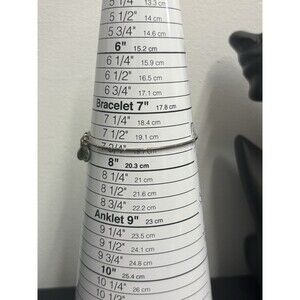 5 1/4" 13.3 cm
5 1/2" 14 cm
5 3/4" 14.6 cm
6" 15.2 cm
6 1/4" 15.9 cm
6 1/2" 16.5 cm
6 3/4" 17.1 cm
Bracelet 7" 17.8 cm
7 1/4" 18.4 cm
7 1/2" 19.1 cm
7 3/4"
8" 20.3 cm
8 1/4" 21 cm
8 1/2" 21.6 cm
8 3/4" 22.2 cm
Anklet 9" 23 cm
9 1/4" 23.5 cm
9 1/2" 24.1 cm
9 3/4" 24.8 cm
10" 25.4 cm
10 1/4" 26 cm
10 1/2"